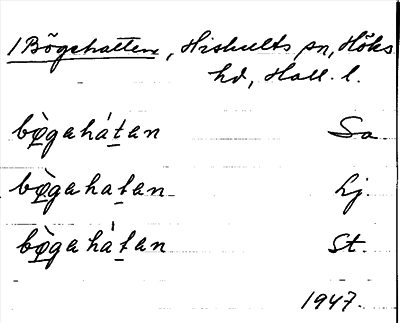 1 Bögehatten, Hishults sn, Höks
hd, Hall. l.
bø̀gahát̠an Sa
bø̀gahat̠an Lj.
bø̀gahát̠an St.
1947.